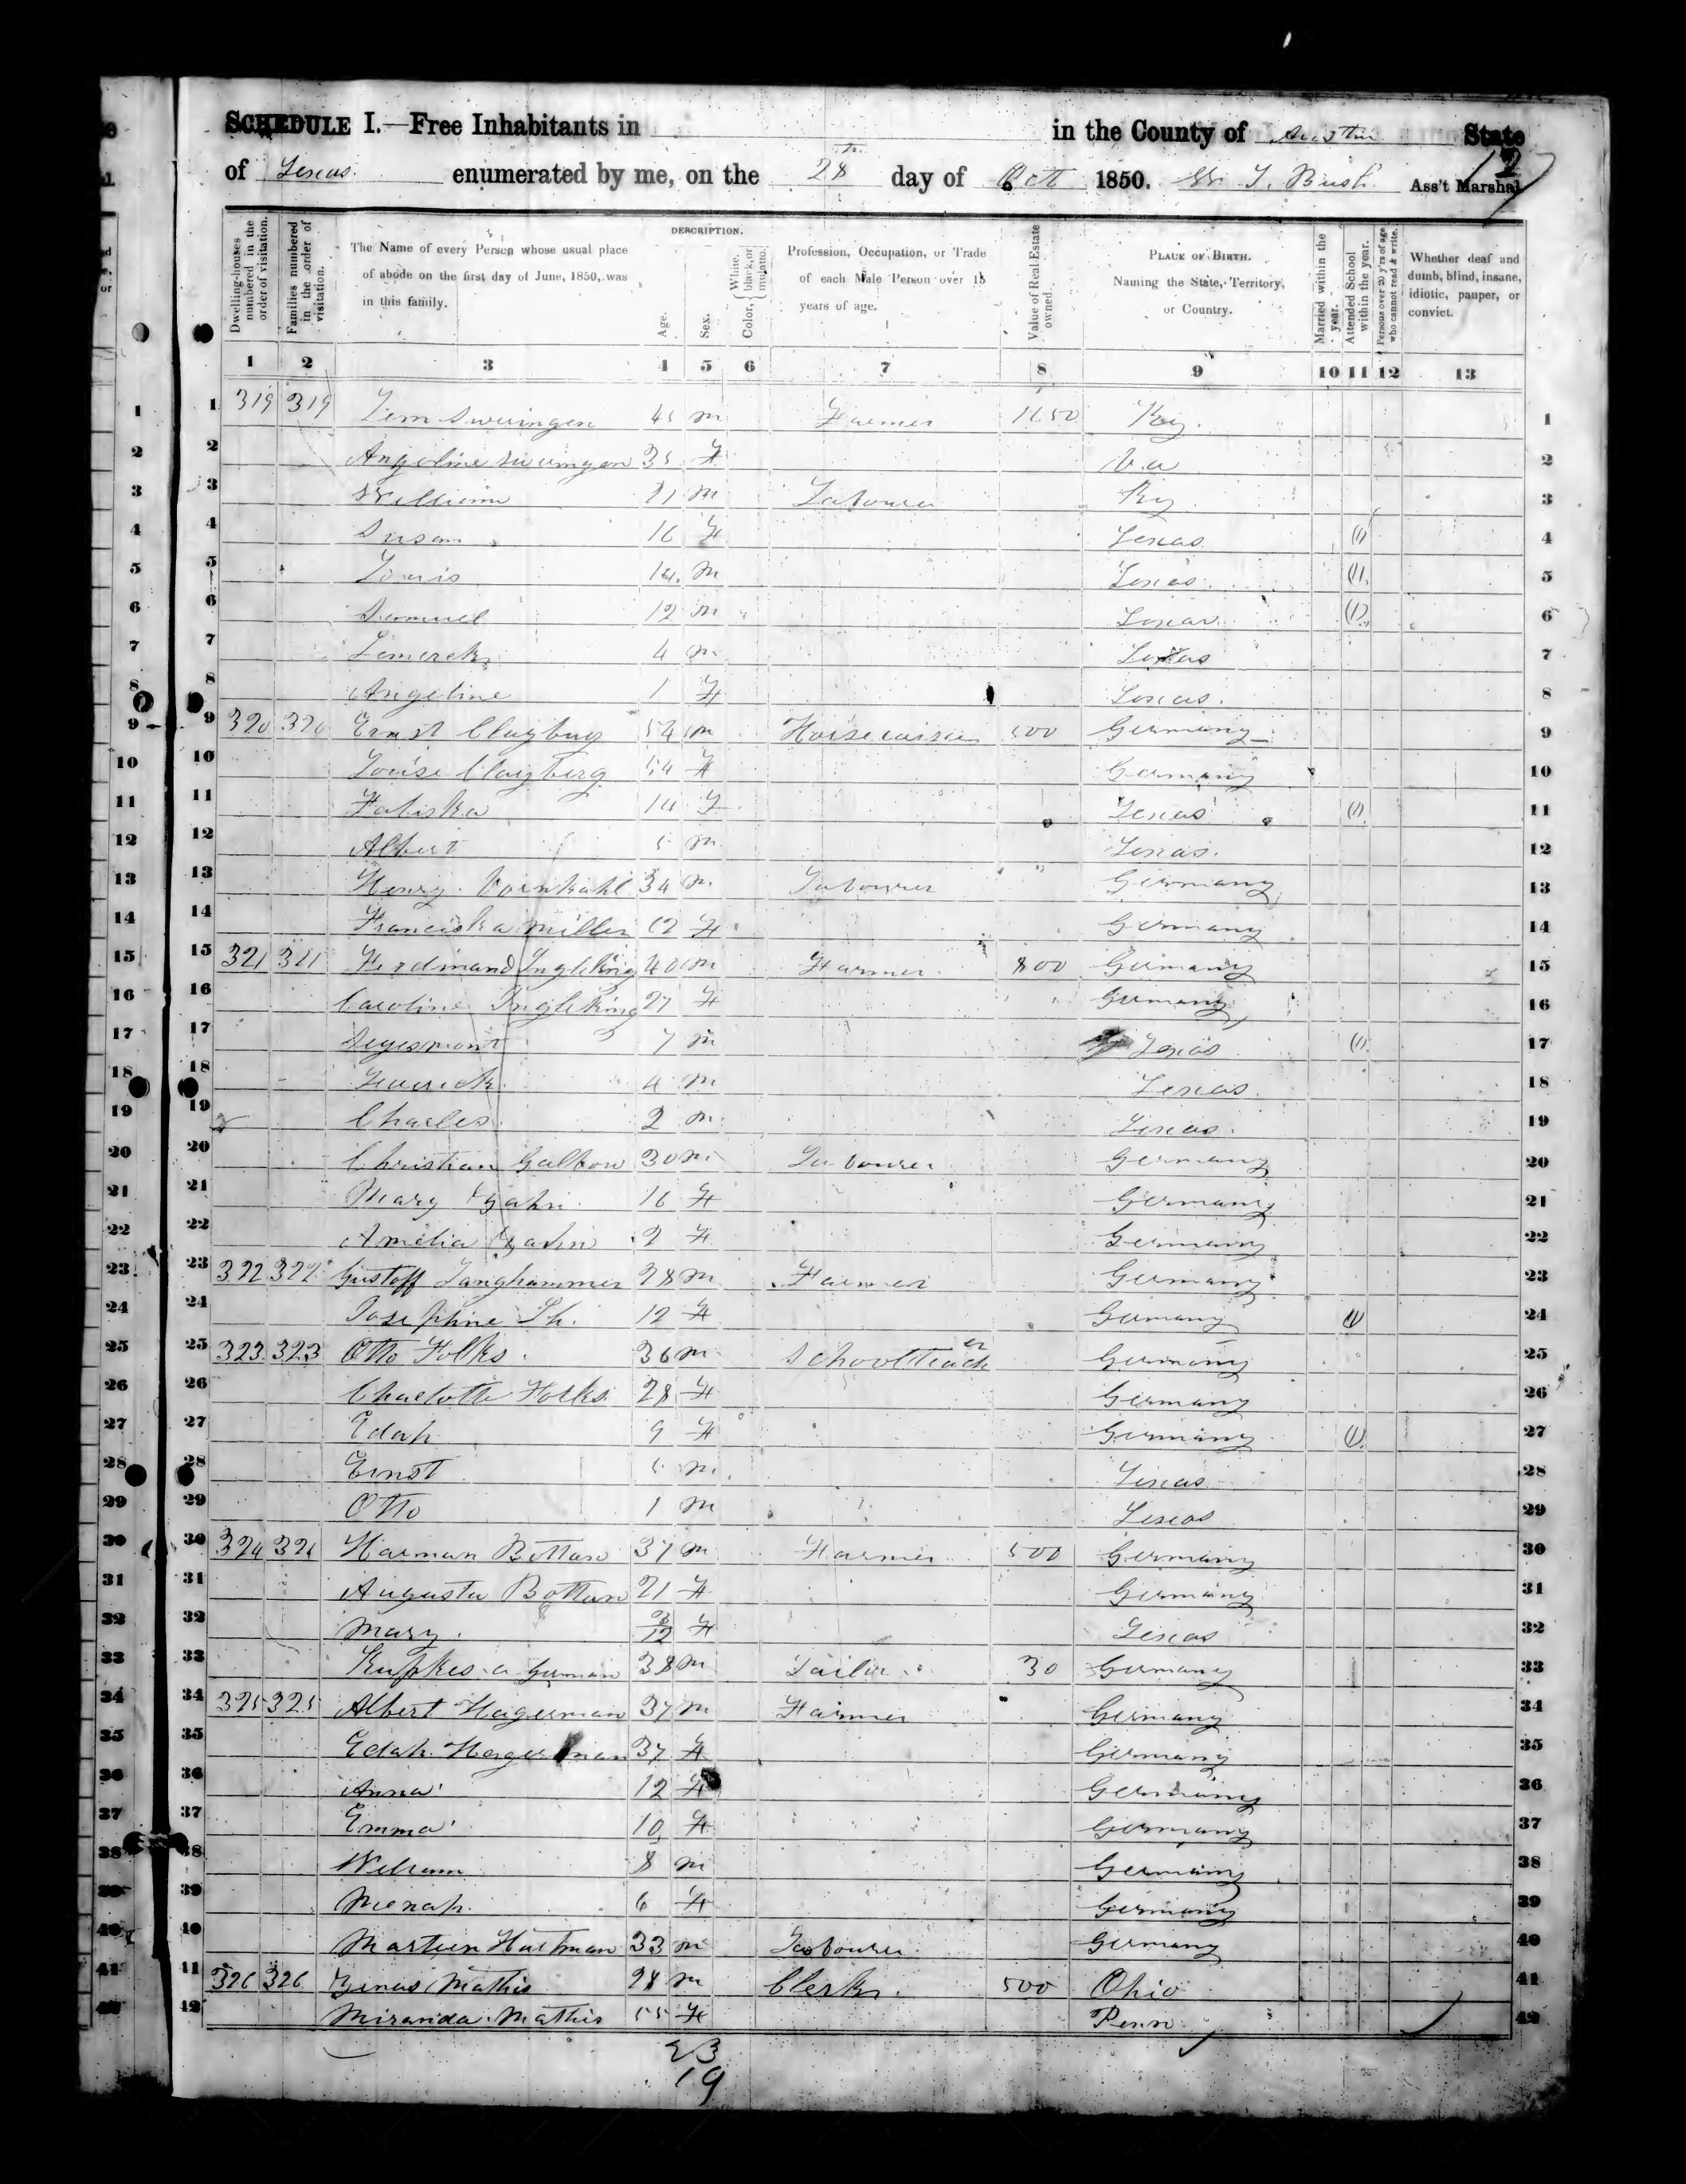 SCHEDULE I.—Free Inhabitants in in the County of Austin State
of Texas. enumerated by me, on the 28th day of Oct 1850. W. T. Bush Ass't Marshal
DESCRIPTION.
Dwelling-houses numbered in the order of visitation. Families numbered in the order of visitation. The Name of every Person whose usual place of abode on the first day of June, 1850, was in this family. Age. Sex. Color, White, black, or mulatto. Profession, Occupation, or Trade of each Male Person over 15 years of age. Value of Real Estate owned. PLACE OF BIRTH. Naming the State, Territory, or Country. Married within the year. Attended School within the year. Persons over 20 y'rs of age who cannot read & write. Whether deaf and dumb, blind, insane, idiotic, pauper, or convict.
1 2 3 4 5 6 7 8 9 10 11 12 13
1 1 319 319 Lem Sweringen 45 m Farmer Ky. 1
2 2 Angeline 35 F Va 2
3 3 William 21 m Labourer Ky 3
4 4 Susan 16 F Texas (1) 4
5 5 Louis 14 m Texas (1) 5
6 6 Samuel 12 m Texas (1) 6
7 7 4 m Texas 7
8 8 Angeline 1 F Texas. 8
9 9 320 320 Ernst Claybug 54 m 500 Germany 9
10 10 Louise Clayberg 54 F Germany 10
11 11 14 F Texas (1) 11
12 12 Albert 5 m Texas. 12
13 13 Henry Vornkahl 34 m Labourer Germany 13
14 14 Franciska Miller 62 F Germany 14
15 15 321 321 Ferdinand Ingleking 40 m Farmer 800 Germany 15
16 16 Caroline Ingleking 27 F Germany 16
17 17 Segesmont 7 m Texas (1) 17
18 18 4 m Texas. 18
19 19 Charles 2 m Texas. 19
20 20 Christian 30 m Labourer Germany 20
21 21 Mary 16 F Germany 21
22 22 Amelia 2 F Germany 22
23 23 322 322 Gustoff Langhammer 28 m Farmer Germany 23
24 24 Josephine 12 F Germany (1) 24
25 25 323 323 Otto Folks. 36 m Schoolteacher Germany 25
26 26 Charlotte Folks. 28 F Germany 26
27 27 Edah 9 F Germany (1) 27
28 28 Ernst 5 m Texas 28
29 29 Otto 1 m Texas 29
30 30 324 324 Harman Bottan 37 m Farmer 500 Germany 30
31 31 Augusta Bottan 21 F Germany 31
32 32 Mary. F Texas 32
33 33 Kupkes a German 38 m Tailor 30 Germany 33
34 34 325 325 Albert Hagerman 37 m Farmer Germany 34
35 35 Edah Hagerman 37 F Germany 35
36 36 Anna 12 F Germany 36
37 37 Emma 10 F Germany 37
38 38 William 8 m Germany 38
39 39 Menah 6 F Germany 39
40 40 Marteen Hartman 33 m Labourer Germany 40
41 41 326 326 Zenas Mathis 28 m Clerk. 500 Ohio 41
42 42 Miranda Mathis 55 F Penn 42
23
19